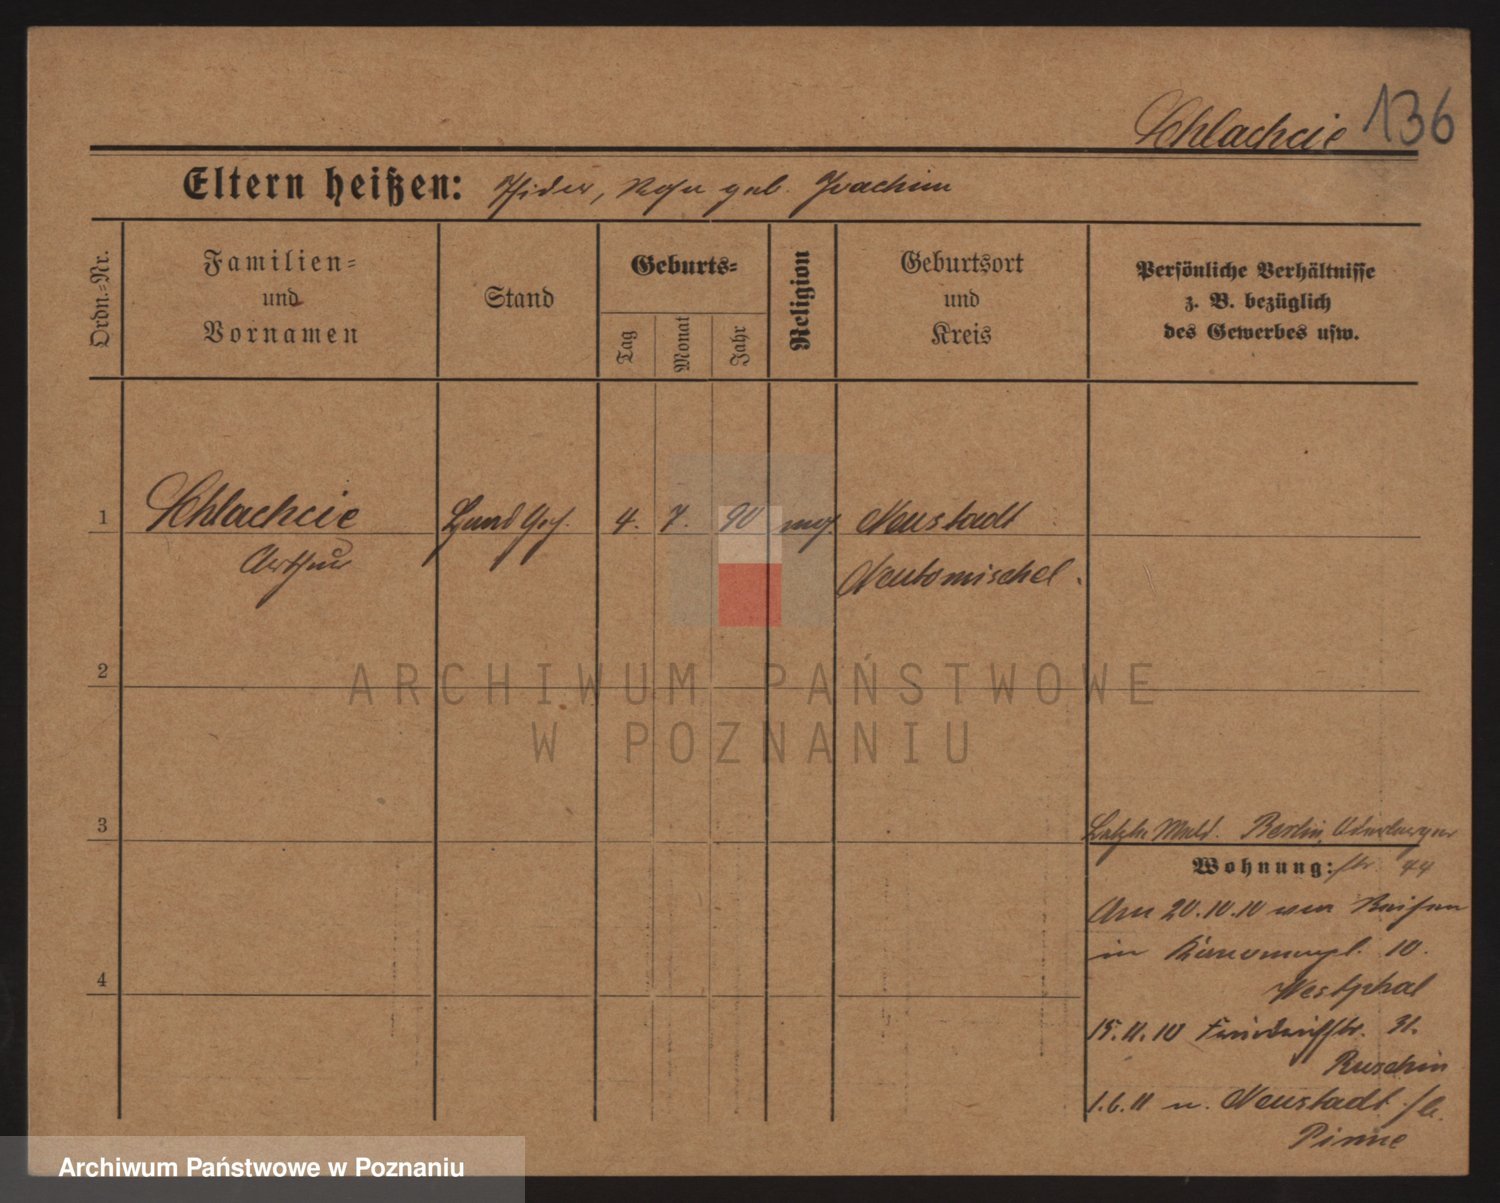 Schlachcic 136
Eltern heißen: Isidor, Rosa geb. Joachim
Ordn.-Nr.
Familien-
und
Vornamen
Stand
Geburts-
Tag
Monat
Jahr
Religion
Geburtsort
und
Kreis
Persönliche Verhältnisse
z. B. bezüglich
des Gewerbes usw.
1 Schlachcic 4. 7. 90 mos. Neustadt
Arthur Neutomischel.
2
ARCHIWUM PAŃSTWOWE
W POZNANIU
3
Letzte Meld. Berlin,
Wohnung: str. 44
Am 20.10.10 von
in 10.
Westphal
15.11.10 Friedrichstr. 31.
4
Ruschin
1.6.11 n. Neustadt b.
Pinne
Archiwum Państwowe w Poznaniu